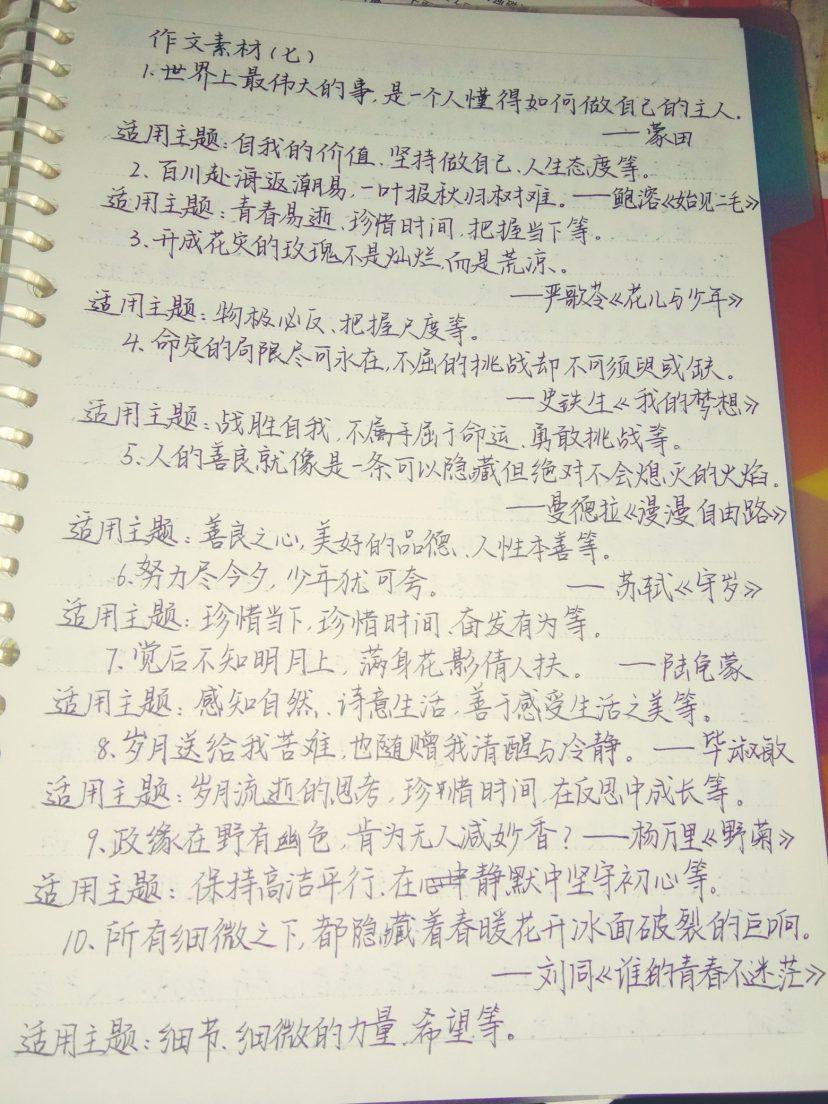 作文素材(七)
1.世界上最伟大的事,是一个人懂得如何做自己的主人.
——蒙田
适用主题:自我的价值、坚持做自己、人生态度等。
2、百川赴海返潮易,一叶报秋归树难。——鲍溶《始见二毛》
适用主题:青春易逝、珍惜时间、把握当下等。
3、开成花灾的玫瑰不是灿烂,而是荒凉。
——严歌苓《花儿与少年》
适用主题:物极必反、把握尺度等。
4、命定的局限尽可永在,不屈的挑战却不可须臾或缺。
——史铁生《我的梦想》
适用主题:战胜自我,不屈于命运、勇敢挑战等。
5、人的善良就像是一条可以隐藏但绝对不会熄灭的火焰.
——曼德拉《漫漫自由路》
适用主题:善良之心,美好的品德、人性本善等。
6、努力尽今夕,少年犹可夸。 ——苏轼《守岁》
适用主题:珍惜当下,珍惜时间、奋发有为等。
7、觉后不知明月上,满身花影倩人扶。 ——陆龟蒙
适用主题:感知自然、诗意生活,善于感受生活之美等。
8、岁月送给我苦难,也随赠我清醒与冷静。——毕淑敏
适用主题:岁月流逝的思考,珍惜时间,在反思中成长等。
9、政缘在野有幽色,肯为无人减妙香?——杨万里《野菊》
适用主题:保持高洁平行、在静默中坚守初心等。
10、所有细微之下,都隐藏着春暖花开冰面破裂的巨响。
——刘同《谁的青春不迷茫》
适用主题:细节、细微的力量、希望等。